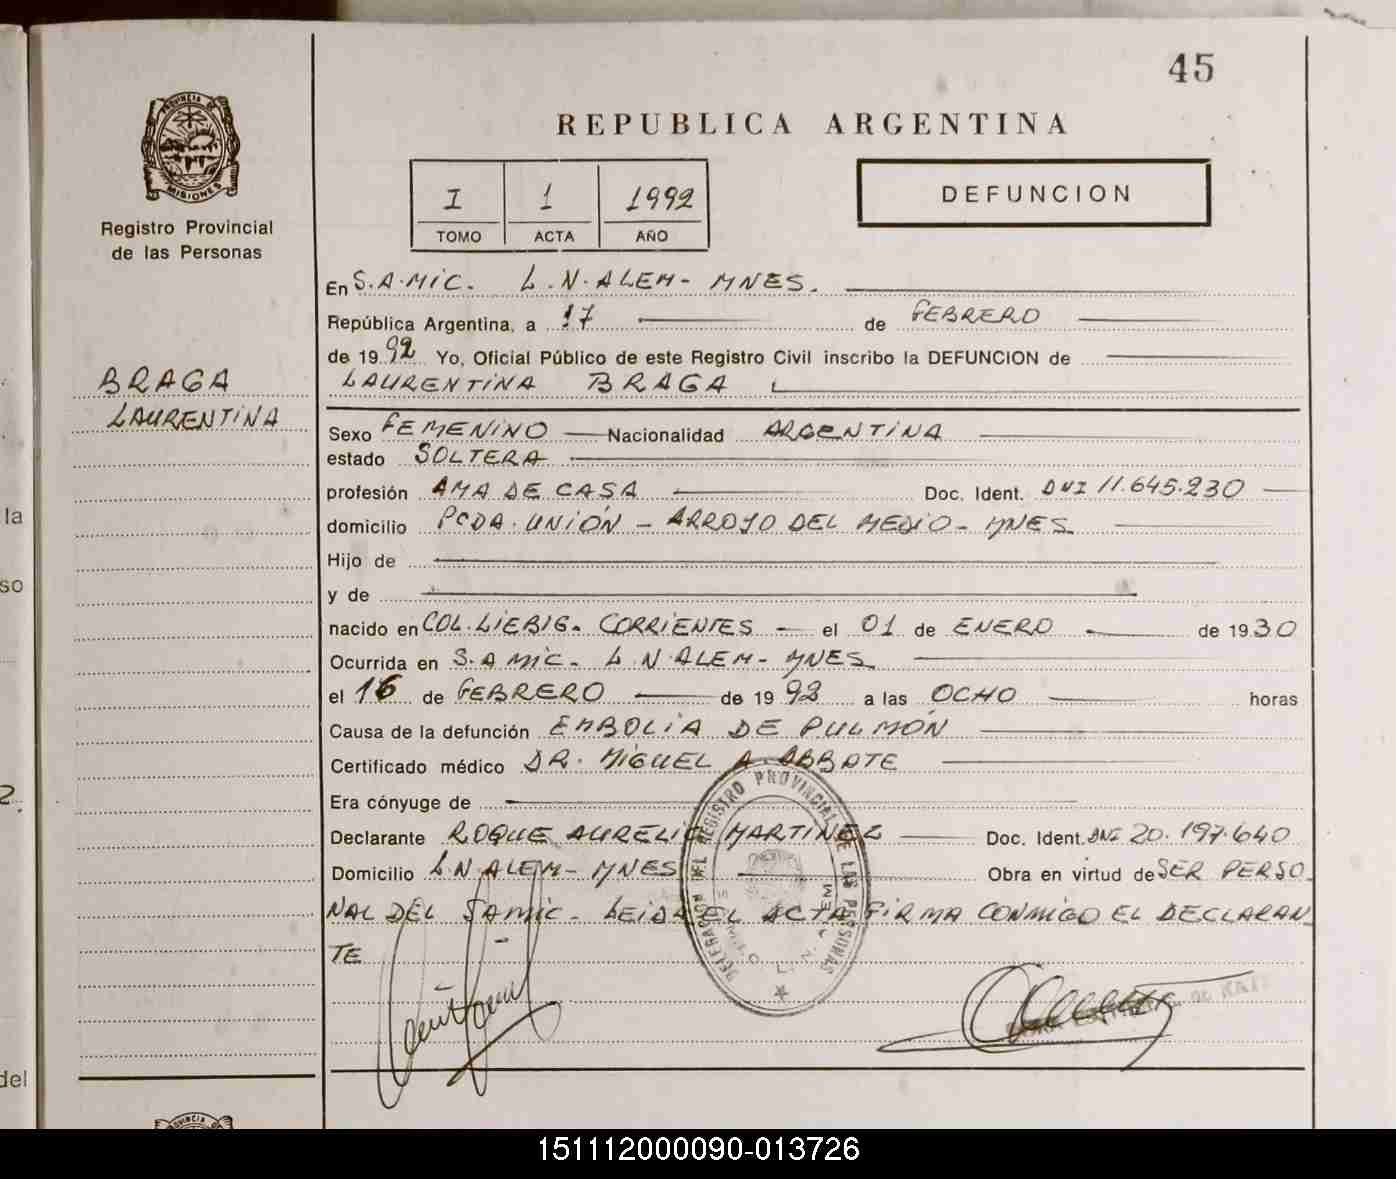 45
PROVINCIA DE
MISIONES
Registro Provincial
de las Personas
BRAGA
LAURENTINA
REPUBLICA ARGENTINA
I 1 1992
TOMO ACTA AÑO
DEFUNCION
En S.A.MIC. L.N.ALEM- MNES.
República Argentina, a 17 de FEBRERO
de 1992 Yo, Oficial Público de este Registro Civil inscribo la DEFUNCION de
LAURENTINA BRAGA
Sexo FEMENINO Nacionalidad ARGENTINA
estado SOLTERA
profesión AMA DE CASA Doc. Ident. DNI 11.645.230
domicilio PCDA. UNIÓN - ARROYO DEL MEDIO - MNES
Hijo de
y de
nacido en COL. LIEBIG. CORRIENTES - el 01 de ENERO de 1930
Ocurrida en S.A MIC. L.N.ALEM- MNES
el 16 de FEBRERO de 1992 a las OCHO horas
Causa de la defunción EMBOLIA DE PULMÓN
Certificado médico DR. MIGUEL A. ABBATE
Era cónyuge de
Declarante ROQUE AURELIO MARTINEZ Doc. Ident. DNI 20.197.640
Domicilio L.N ALEM- MNES Obra en virtud de SER PERSO
NAL DEL SAMIC. LEIDA EL ACTA FIRMA CONMIGO EL DECLARAN
TE
DELEGACION DEL REGISTRO PROVINCIAL DE LAS PERSONAS
L. N. ALEM
la
so
2.
del
PROVINCIA DE
151112000090-013726